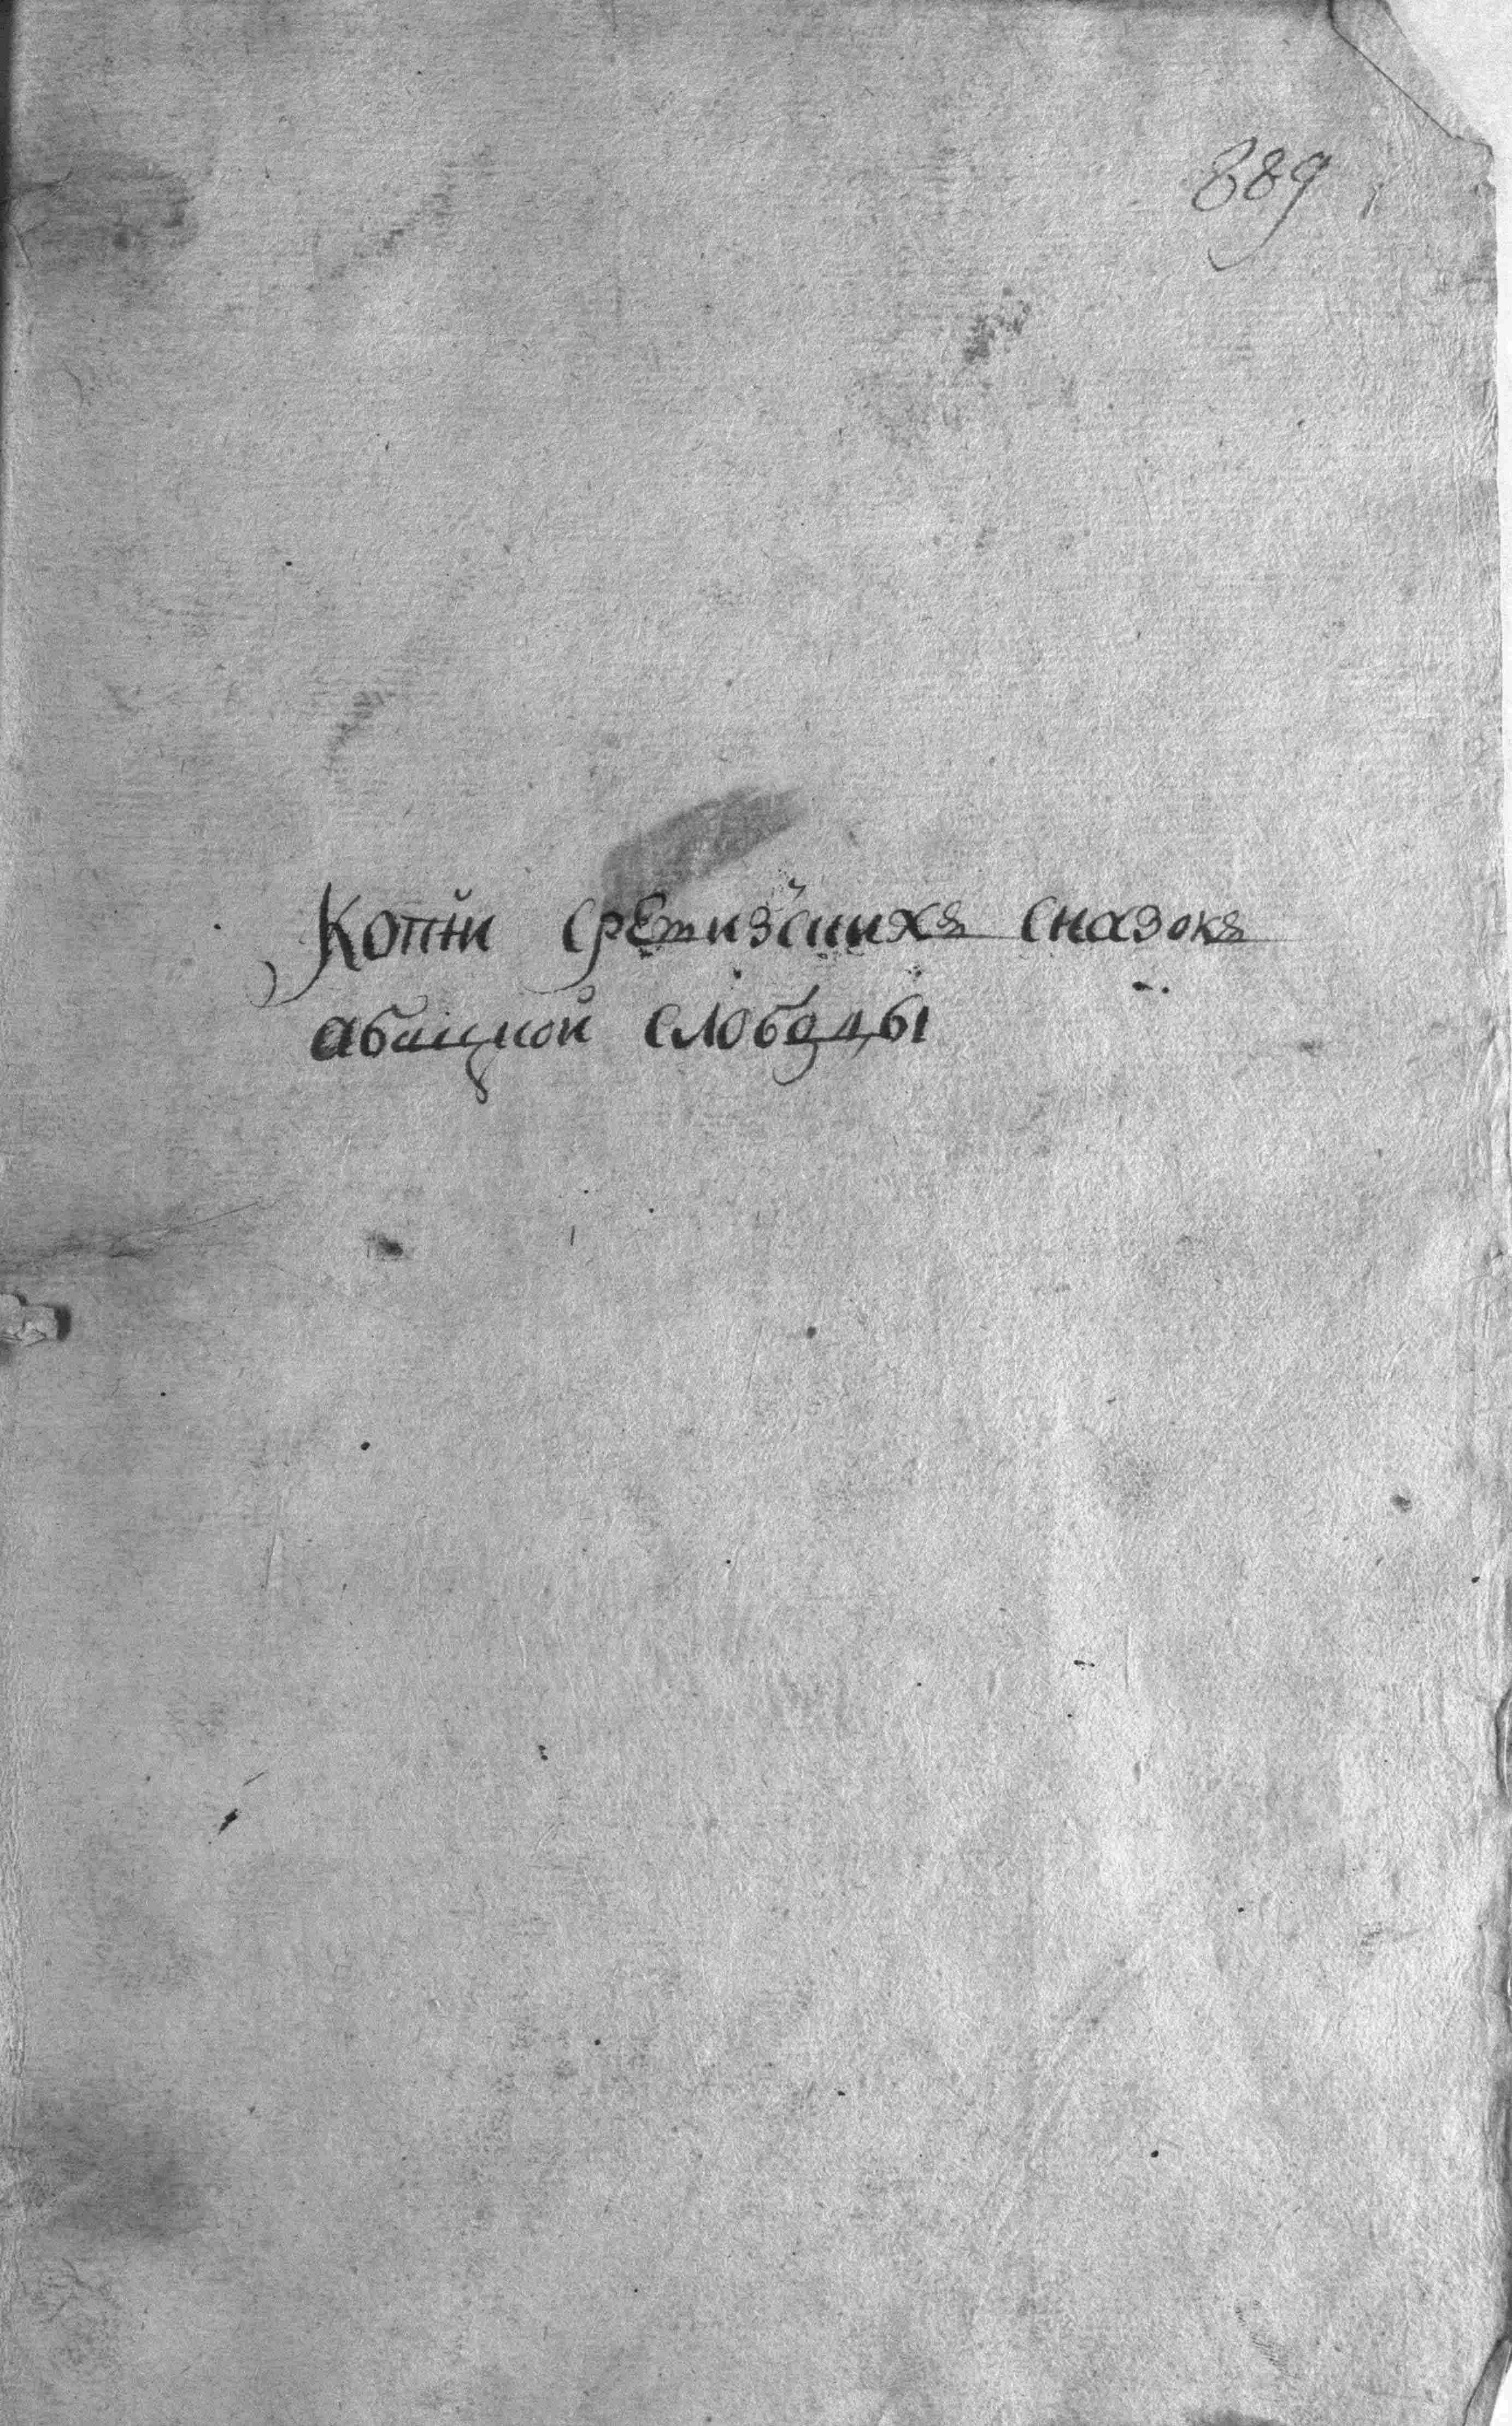 889
Копїи сревизскихъ сказокъ
абацкой слободы